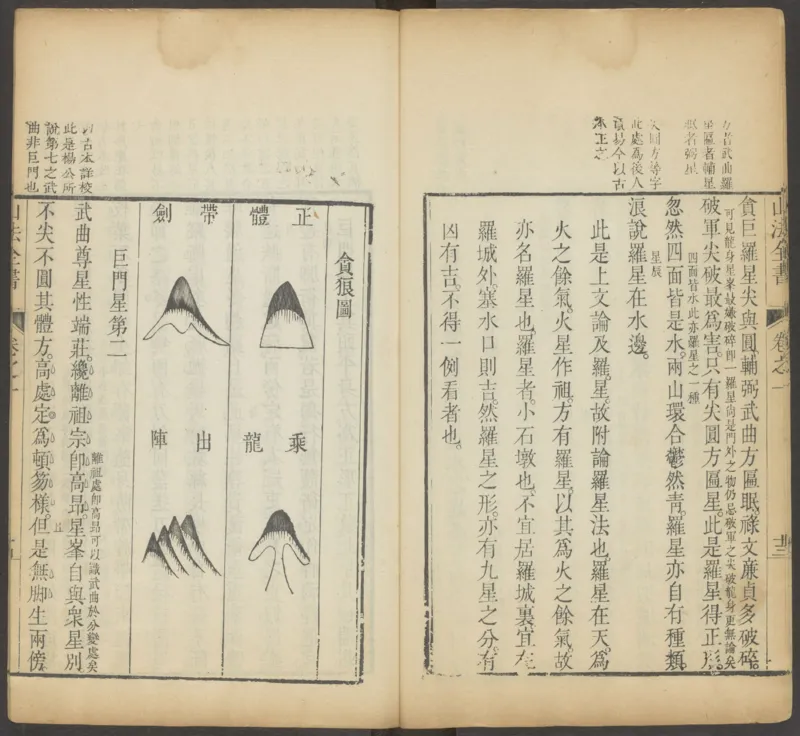 方者武曲羅
星匾者輔星
弼者弼星
尖圓方等字
此處為後人
今以古
本正之
山法全書
卷之一
貪巨羅星尖與圓輔弼武曲方匾眠祿文廉貞多破碎
破軍尖破最為害只有尖圓方匾星此是羅星得正形
可見龍身星峯最嫌破碎即一羅星向是門外之物仍忌破軍之尖破龍身更無論矣
忽然四面皆是水兩山環合鬱然青羅星亦自有種類
四面皆水此亦羅星之一種
浪說羅星在水邊
星辰
此是上文論及羅星故附論羅星法也羅星在天為
火之餘氣火星作祖方有羅星以其為火之餘氣故
亦名羅星也羅星者小石墩也不宜居羅城裏宜在
羅城外塞水口則吉然羅星之形亦有九星之分有
凶有吉不得一例看者也
貪狼圖
正體
乘龍
帶劍
出陣
巨門星第二
古本詳校
此是楊公所
說第七之武
曲非巨門也
武曲尊星性端莊纔離祖宗即高昂星峯自與衆星別
離祖處即高昂可以識武曲於分變處矣
不尖不圓其體方高處定為頓笏樣但是無脚生兩傍
山法全書
卷之一